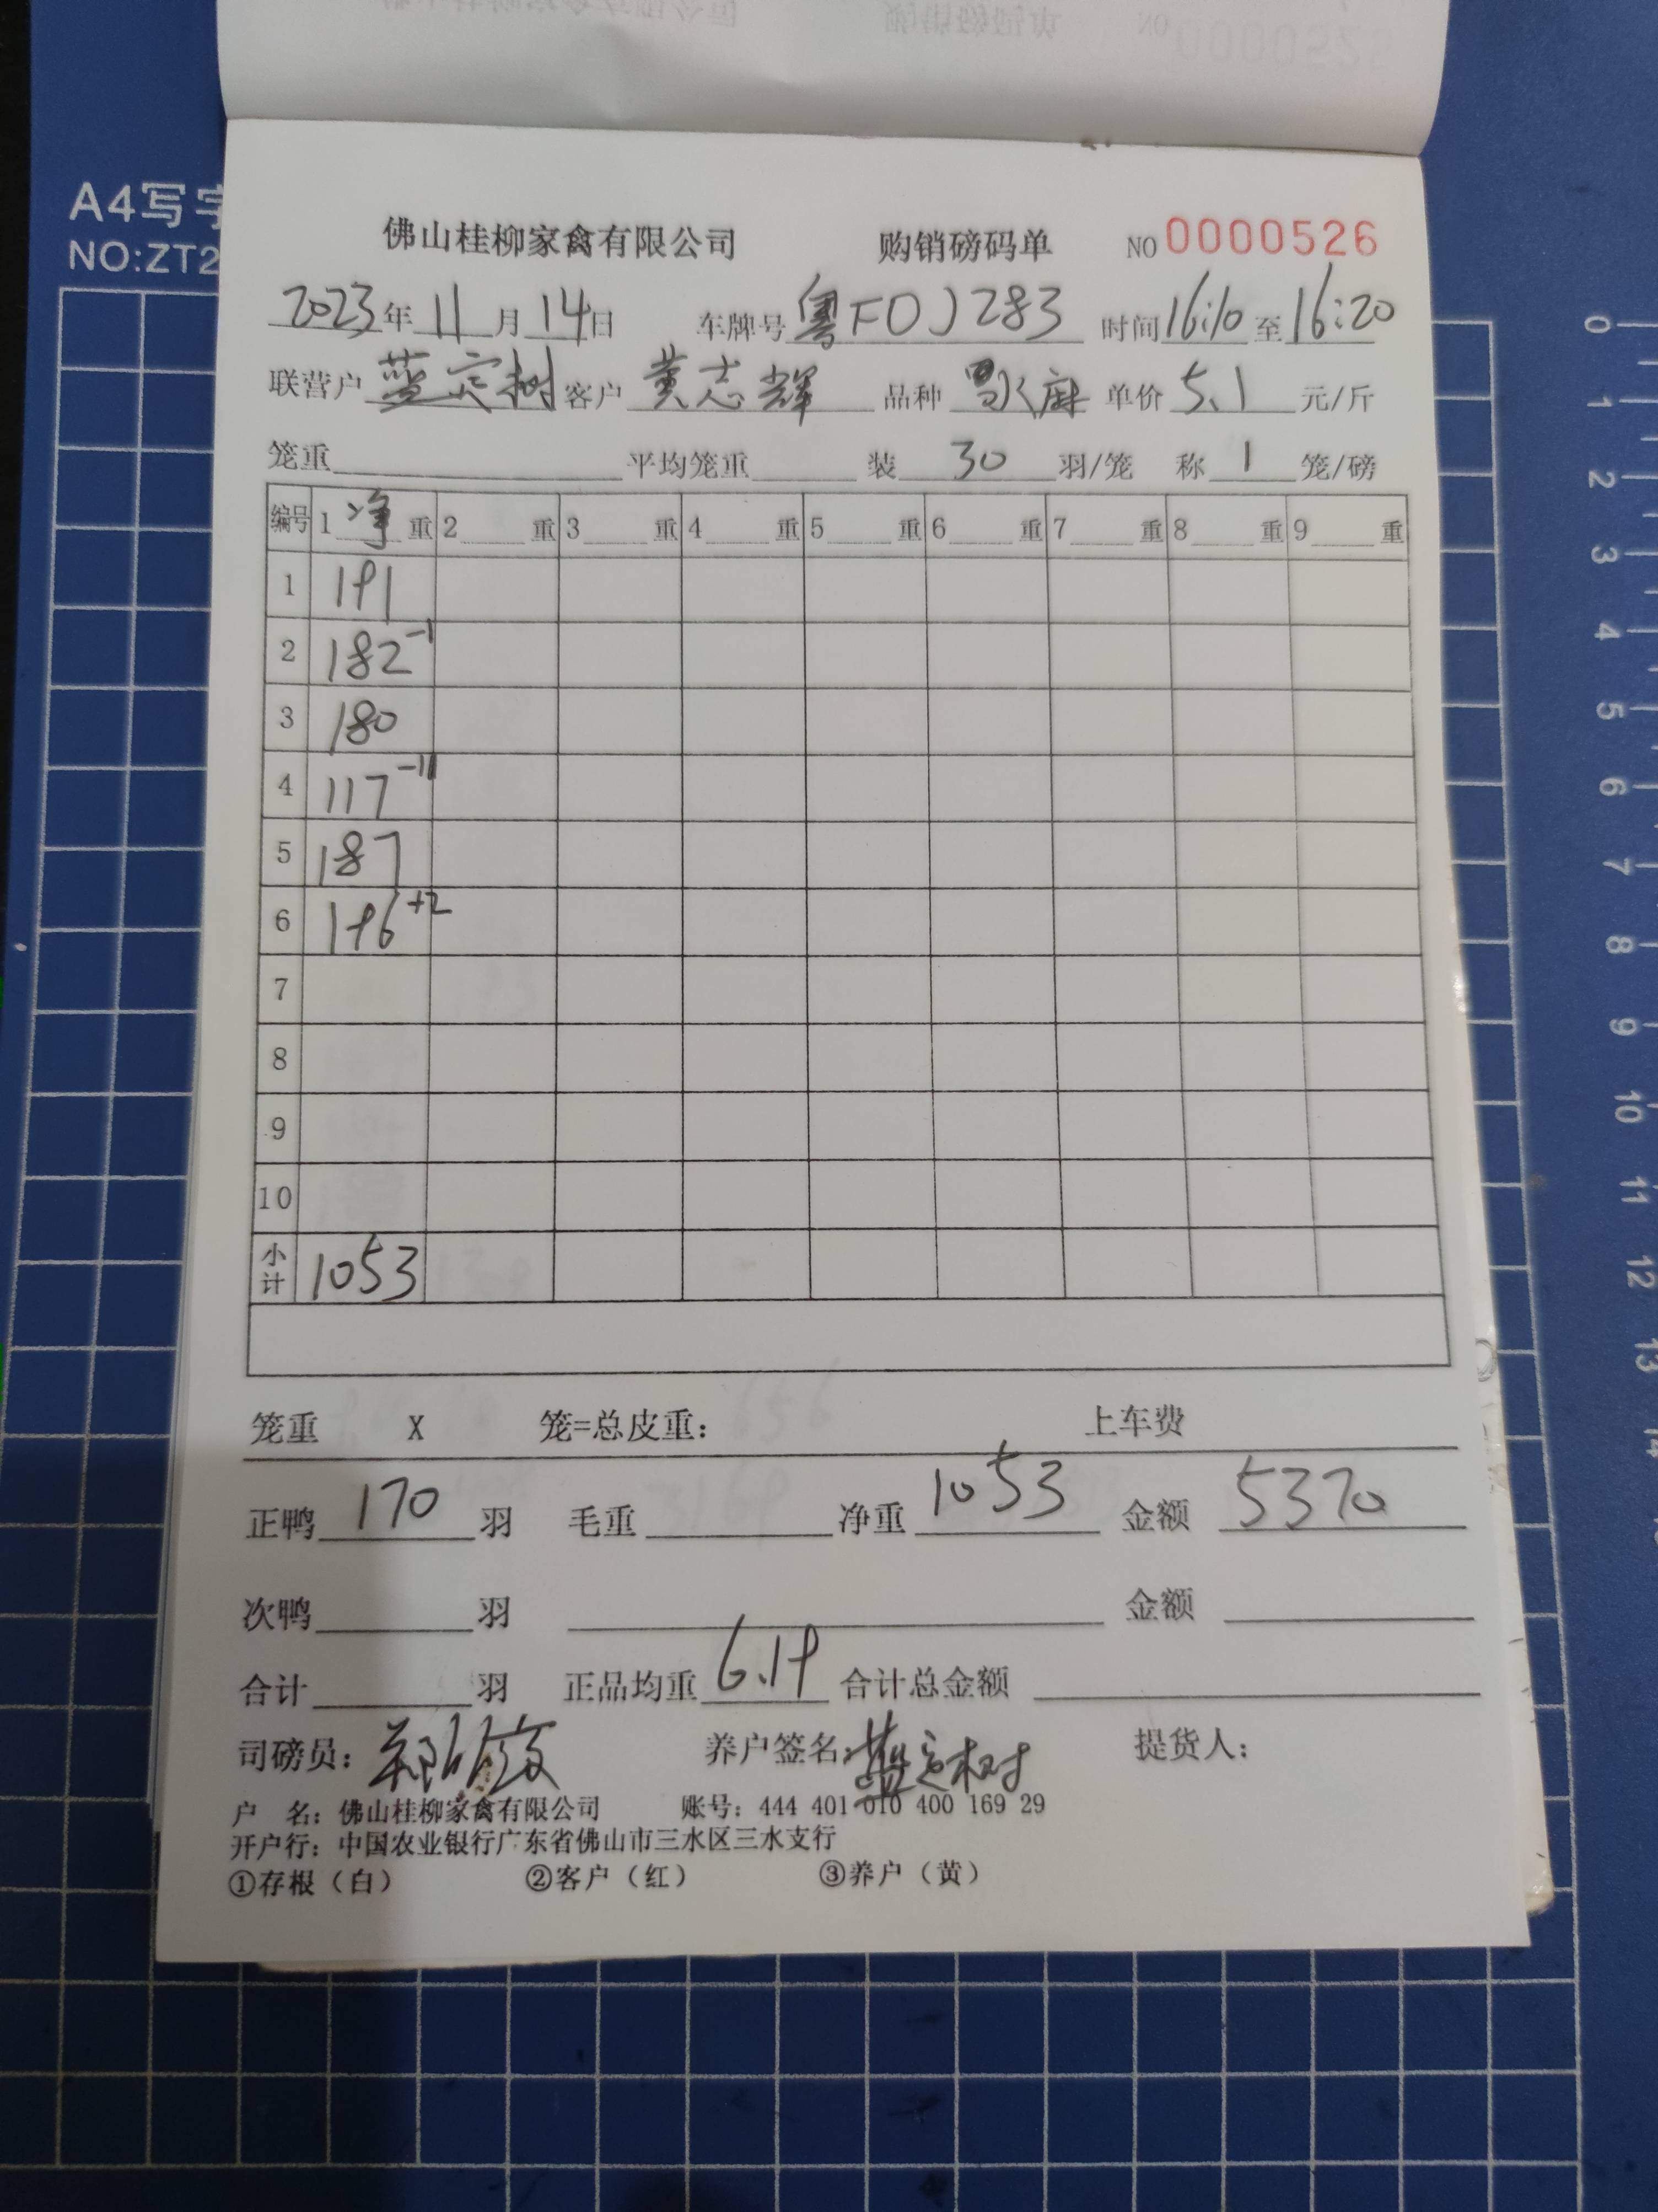 A4写字
NO:ZT2
佛山桂柳家禽有限公司 购销磅码单 NO 0000526
2023年11月14日 车牌号 粤FDJ283 时间16:10至16:20
联营户 蓝定树 客户 黄志辉 品种 单价 5.1 元/斤
笼重 平均笼重 装 30 羽/笼 称 1 笼/磅
编号 1 净 重 2 重 3 重 4 重 5 重 6 重 7 重 8 重 9 重
1 191
2 182 -1
3 180
4 117 -11
5 187
6 196 +2
7
8
9
10
小计 1053
笼重 X 笼=总皮重: 上车费
正鸭 170 羽 毛重 净重 1053 金额 5370
次鸭 羽 金额
合计 羽 正品均重 6.19 合计总金额
司磅员: 养户签名: 蓝定树 提货人:
户 名: 佛山桂柳家禽有限公司 账号: 444 401 010 400 169 29
开户行: 中国农业银行广东省佛山市三水区三水支行
①存根(白) ②客户(红) ③养户(黄)
0
1
2
3
4
5
6
7
8
9
10
11
12
13
14